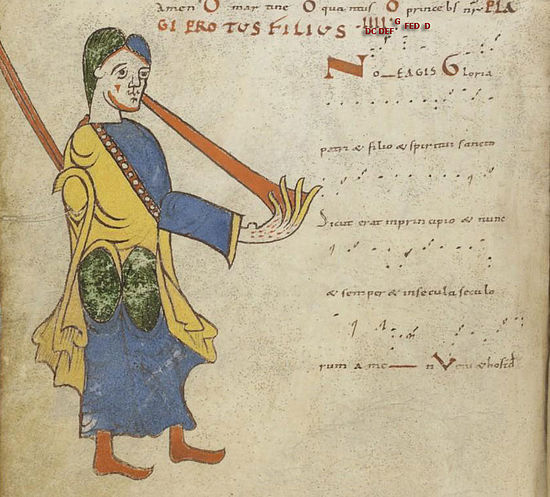 Amen O mar tine O qua mus O princebs nr PLA
GI PROTUS FILIUS DC DEF G FED D
NO_EAGIS Gloria
patri & filio & spiritui sancto
Sicut erat inprincipio & nunc
& semper & insecula seculo
rum a me n Venihosid